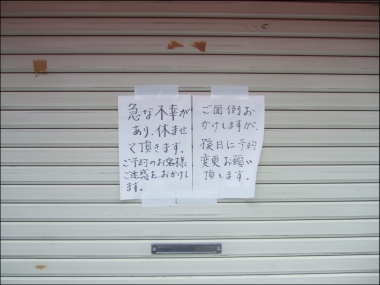 急な不幸が
あり、休ませ
て頂きます。
ご予約のお客様
ご迷惑をおかけしま
す。
ご面倒お
かけしますが、
後日に予約
変更お願い
頂します。